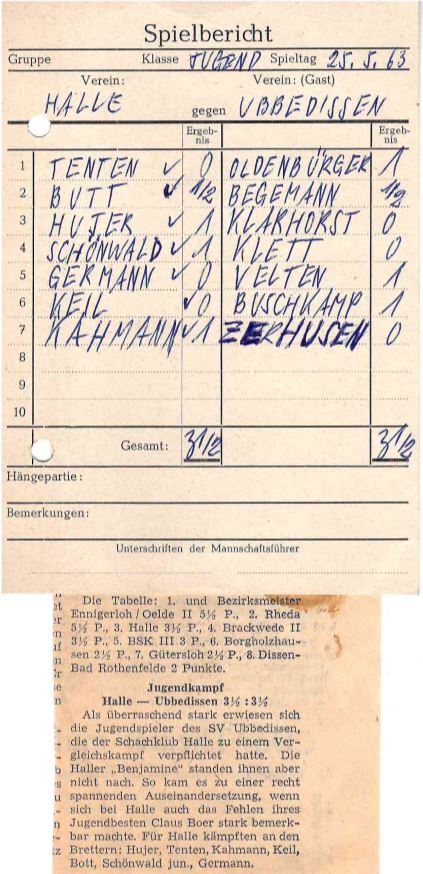 Spielbericht
Gruppe Klasse JUGEND Spieltag 25. 5. 63
Verein: Verein: (Gast)
HALLE gegen UBBEDISSEN
Ergeb- nis Ergeb- nis
1 TENTEN ✓ 0 OLDENBÜRGER 1
2 BUTT ✓ 1/2 BEGEMANN 1/2
3 HUJER ✓ 1 KLARHORST 0
4 SCHÖNWALD ✓ 1 KLETT 0
5 GERMANN ✓ 0 VELTEN 1
6 KEIL ✓ 0 BUSCHKAMP 1
7 KAHMANN ✓ 1 ZERHUSEN 0
8
9
10
Gesamt: 3 1/2 3 1/2
Hängepartie:
Bemerkungen:
Unterschriften der Mannschaftsführer
Die Tabelle: 1. und Bezirksmeister
Ennigerloh/Oelde II 5½ P., 2. Rheda
5½ P., 3. Halle 3½ P., 4. Brackwede II
3½ P., 5. BSK III 3 P., 6. Borgholzhau-
sen 2½ P., 7. Gütersloh 2½ P., 8. Dissen-
Bad Rothenfelde 2 Punkte.
Jugendkampf
Halle — Ubbedissen 3½ : 3½
Als überraschend stark erwiesen sich
die Jugendspieler des SV Ubbedissen,
die der Schachklub Halle zu einem Ver-
gleichskampf verpflichtet hatte. Die
Haller „Benjamine" standen ihnen aber
nicht nach. So kam es zu einer recht
spannenden Auseinandersetzung, wenn
sich bei Halle auch das Fehlen ihres
Jugendbesten Claus Boer stark bemerk-
bar machte. Für Halle kämpften an den
Brettern: Hujer, Tenten, Kahmann, Keil,
Bott, Schönwald jun., Germann.